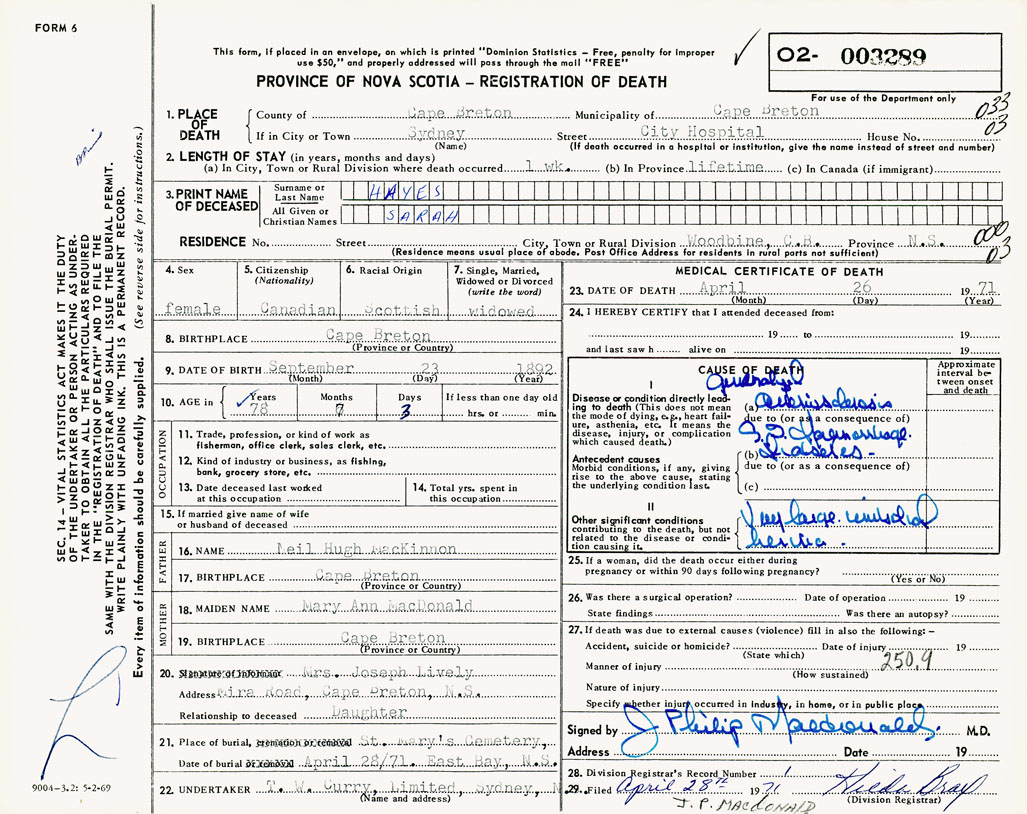 FORM 6
This form, if placed in an envelope, on which is printed "Dominion Statistics – Free, penalty for improper
use $50," and properly addressed will pass through the mail "FREE"
PROVINCE OF NOVA SCOTIA – REGISTRATION OF DEATH
02- 003289
For use of the Department only
033
03
1. PLACE OF DEATH
County of Cape Breton Municipality of Cape Breton
If in City or Town Sydney Street City Hospital House No.
(Name) (If death occurred in a hospital or institution, give the name instead of street and number)
2. LENGTH OF STAY (in years, months and days)
(a) In City, Town or Rural Division where death occurred 1 wk. (b) In Province lifetime (c) In Canada (if immigrant)
3. PRINT NAME OF DECEASED
Surname or Last Name HAYES
All Given or Christian Names SARAH
000
03
RESIDENCE No. Street City, Town or Rural Division Woodbine, C.B. Province N.S.
(Residence means usual place of abode. Post Office Address for residents in rural parts not sufficient)
4. Sex female
5. Citizenship (Nationality) Canadian
6. Racial Origin Scottish
7. Single, Married, Widowed or Divorced (write the word) widowed
8. BIRTHPLACE Cape Breton
(Province or Country)
9. DATE OF BIRTH September 23 1892
(Month) (Day) (Year)
10. AGE in Years 78 Months 7 Days 3 If less than one day old hrs. or min.
OCCUPATION
11. Trade, profession, or kind of work as
fisherman, office clerk, sales clerk, etc.
12. Kind of industry or business, as fishing,
bank, grocery store, etc.
13. Date deceased last worked
at this occupation
14. Total yrs. spent in
this occupation
15. If married give name of wife
or husband of deceased
FATHER
16. NAME Neil Hugh MacKinnon
17. BIRTHPLACE Cape Breton
(Province or Country)
MOTHER
18. MAIDEN NAME Mary Ann MacDonald
19. BIRTHPLACE Cape Breton
(Province or Country)
20. Signature of informant Mrs. Joseph Lively
Address Mira Road, Cape Breton, N.S.
Relationship to deceased Daughter
21. Place of burial, cremation or removal St. Mary's Cemetery,
Date of burial or removal April 28/71. East Bay, N.S.
22. UNDERTAKER T. W. Curry, Limited, Sydney, N.
(Name and address)
MEDICAL CERTIFICATE OF DEATH
23. DATE OF DEATH April 26 1971
(Month) (Day) (Year)
24. I HEREBY CERTIFY that I attended deceased from:
19 to 19
and last saw h alive on 19
CAUSE OF DEATH
Approximate interval between onset and death
I
Disease or condition directly leading to death (This does not mean the mode of dying, e.g., heart failure, asthenia, etc. It means the disease, injury, or complication which caused death.)
Generalized
(a) Arteriosclerosis
due to (or as a consequence of)
G.I. Haemorrhage.
Antecedent causes
Morbid conditions, if any, giving rise to the above cause, stating the underlying condition last.
(b) Diabetes -
due to (or as a consequence of)
(c)
II
Other significant conditions contributing to the death, but not related to the disease or condition causing it.
Very large
hernia.
25. If a woman, did the death occur either during
pregnancy or within 90 days following pregnancy?
(Yes or No)
26. Was there a surgical operation? Date of operation 19
State findings Was there an autopsy?
27. If death was due to external causes (violence) fill in also the following: –
Accident, suicide or homicide? Date of injury 19
(State which) 250.9
Manner of injury
(How sustained)
Nature of injury
Specify whether injury occurred in industry, in home, or in public place
Signed by J Philip Macdonald M.D.
Address Date 19
28. Division Registrar's Record Number 1
29. Filed April 28th 1971 Hilda Bray
(Division Registrar)
J.P. MACDONALD
SEC. 14 – VITAL STATISTICS ACT MAKES IT THE DUTY
OF THE UNDERTAKER OR PERSON ACTING AS UNDER-
TAKER TO OBTAIN ALL THE PARTICULARS REQUIRED
IN THE "REGISTRATION OF DEATH" AND TO FILE THE
SAME WITH THE DIVISION REGISTRAR WHO SHALL ISSUE THE BURIAL PERMIT.
WRITE PLAINLY WITH UNFADING INK. THIS IS A PERMANENT RECORD.
Every item of information should be carefully supplied. (See reverse side for instructions.)
9004-3.2: 5-2-69